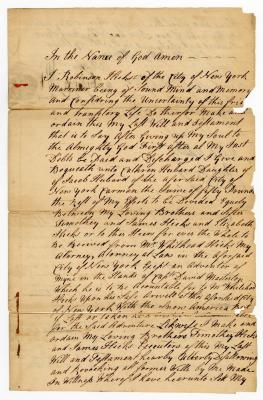 In the Name of God Amen
I Robinson Hicks of the City of New York
Marriner being of Sound Mind and Memory
and Considring the Uncertainty of this frail
and transitory Life Do therefor Make and
ordain this My Last Will and Testament
that is to say After Giving up My Soul to
the Almighty God First after all My Just
Debts be Paid and Discharged I Give and
Bequeath unto Cathrin Huband Daughter of
of Jacob Huband of the afor Said City of
New York Carmen the Sume of fifty Pounds
the Rest of My Efects to be Devided Equely
Between My Loving Brothers and Sister
Timothey and James Hicks and Elizabeth
Hicks or to thar Hares for ever the whole to
be Received from Mr Whithead Hicks My
Attorney, Attorney at Law in the Aforsaid
City of New York Except an Adventer of
in the Hands of
which he is to be Acountable for to Mr Whithead
Hicks Upon his Safe Arrivel to the aforsaid City
of New York With the
for the Said Adventure Likewise I Make and
ordain My Loving Brothers Timothey Hicks
and James Hicks Executors of this My Last
Will and Testament hereby
and Revoaking all former Wills by Me Made
In Witness Whereof I have hereunto Set My